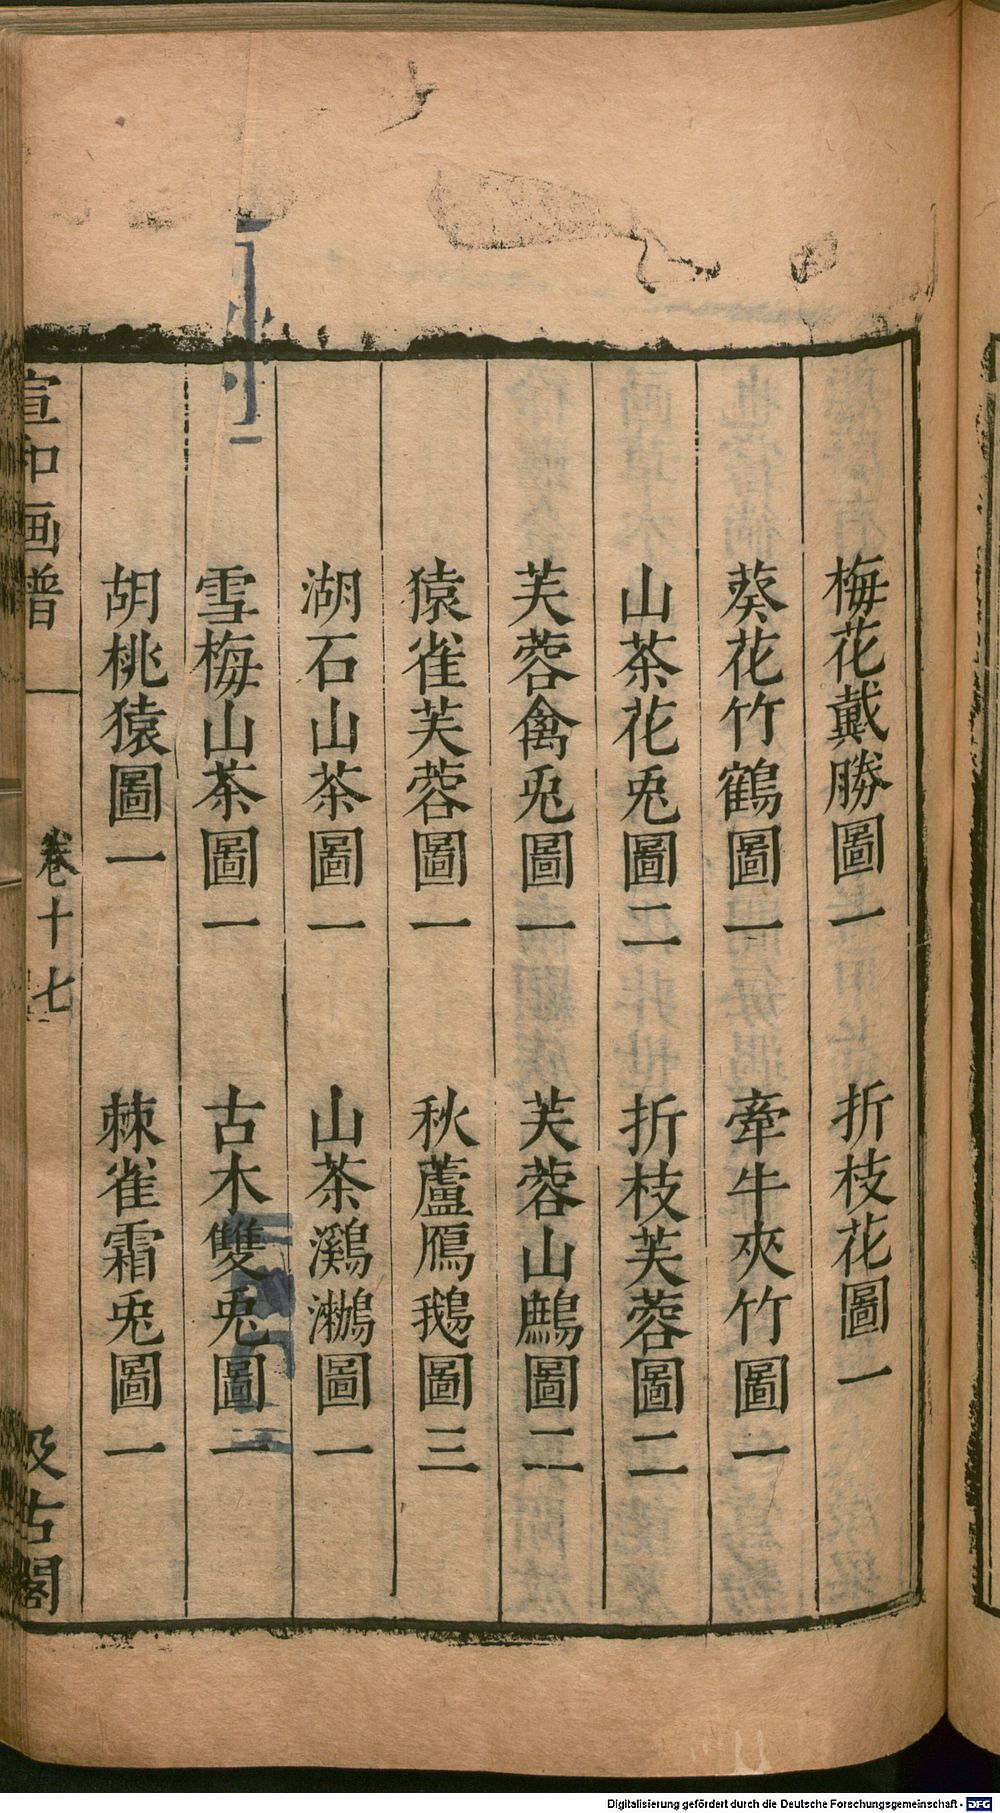 梅花戴勝圖一　折枝花圖一
葵花竹鶴圖一　牽牛夾竹圖一
山茶花兎圖二　折枝芙蓉圖二
芙蓉禽兎圖一　芙蓉山鷓圖二
猿雀芙蓉圖一　秋蘆鴈鵝圖三
湖石山茶圖一　山茶鸂鷘圖一
雪梅山茶圖一　古木雙兎圖一
胡桃猿圖一　棘雀霜兎圖一
宣和画譜　卷十七　汲古閣
Digitalisierung gefördert durch die Deutsche Forschungsgemeinschaft - DFG